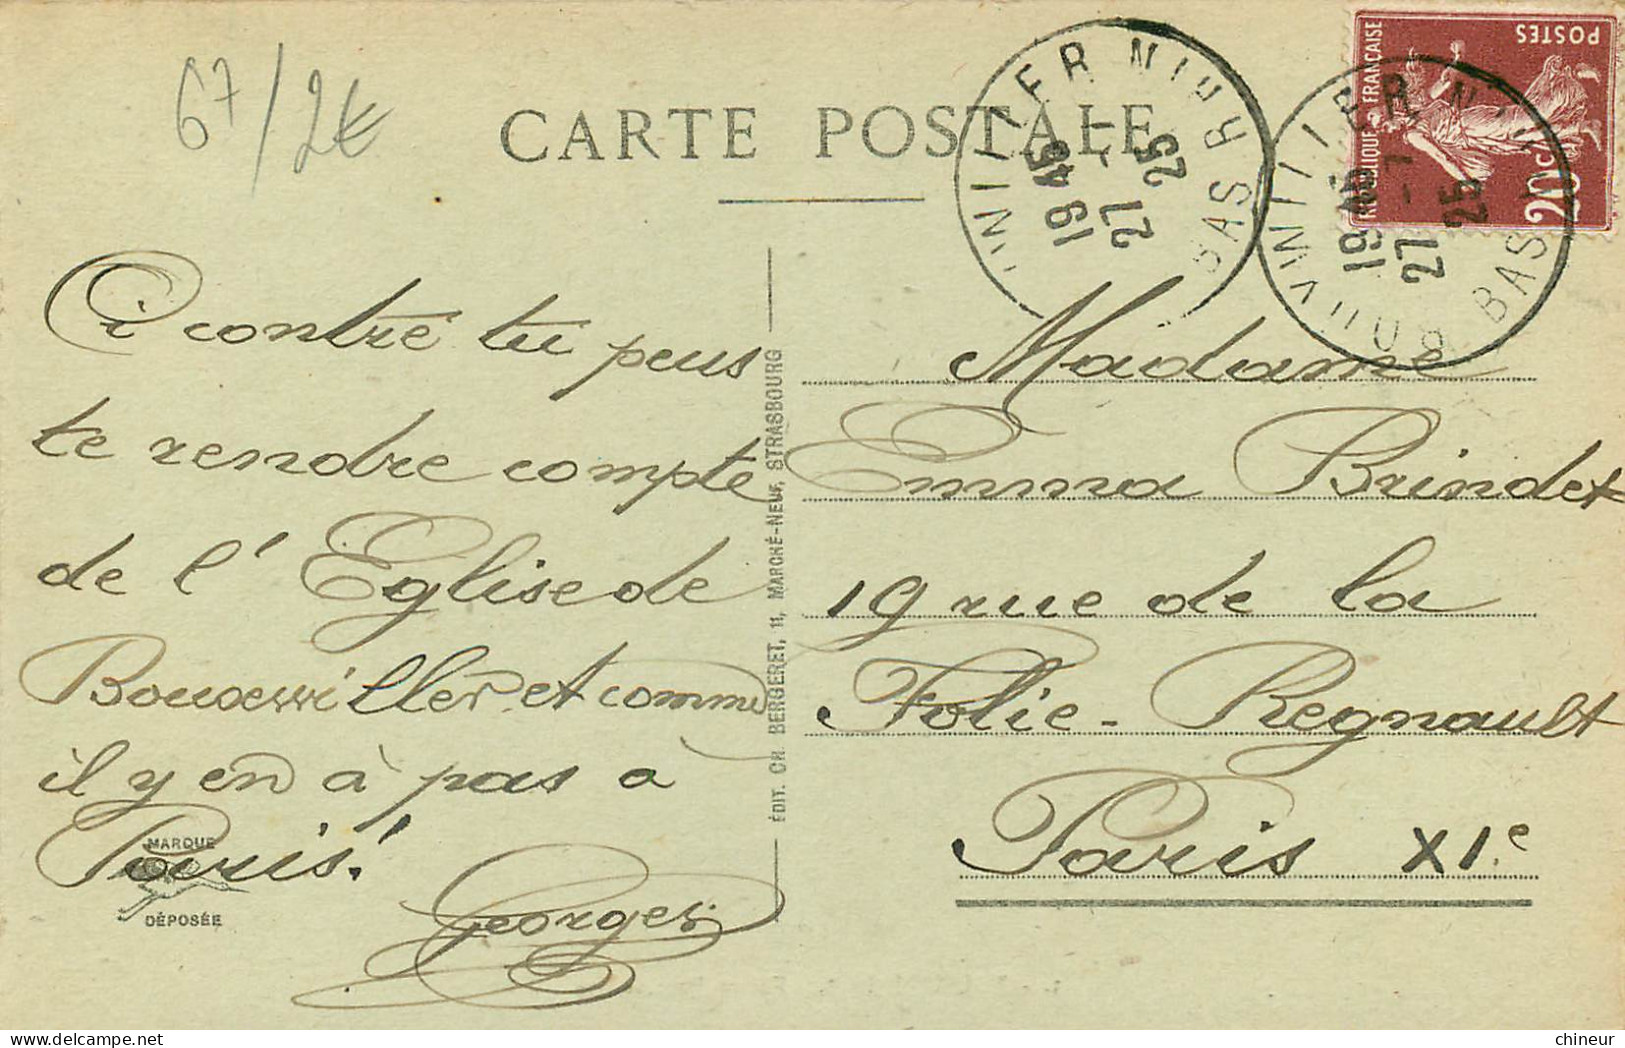 67/2€
CARTE POSTALE
POSTES
RÉPUBLIQUE FRANÇAISE
20c
19 45
27 - 7
25
BAS-RHIN
BOUXWILLER
19 45
27 - 7
25
BAS
Ci contre tu peus
te rendre compte
de l'Eglise de
Bouxewiller et comme
il y en à pas à
Paris!
Georges
MARQUE
DÉPOSÉE
ÉDIT. CH. BERGERET, 11, MARCHÉ-NEUF, STRASBOURG
Madame
Emma Brindet
19 rue de la
Folie-Regnault
Paris XIe
chineur